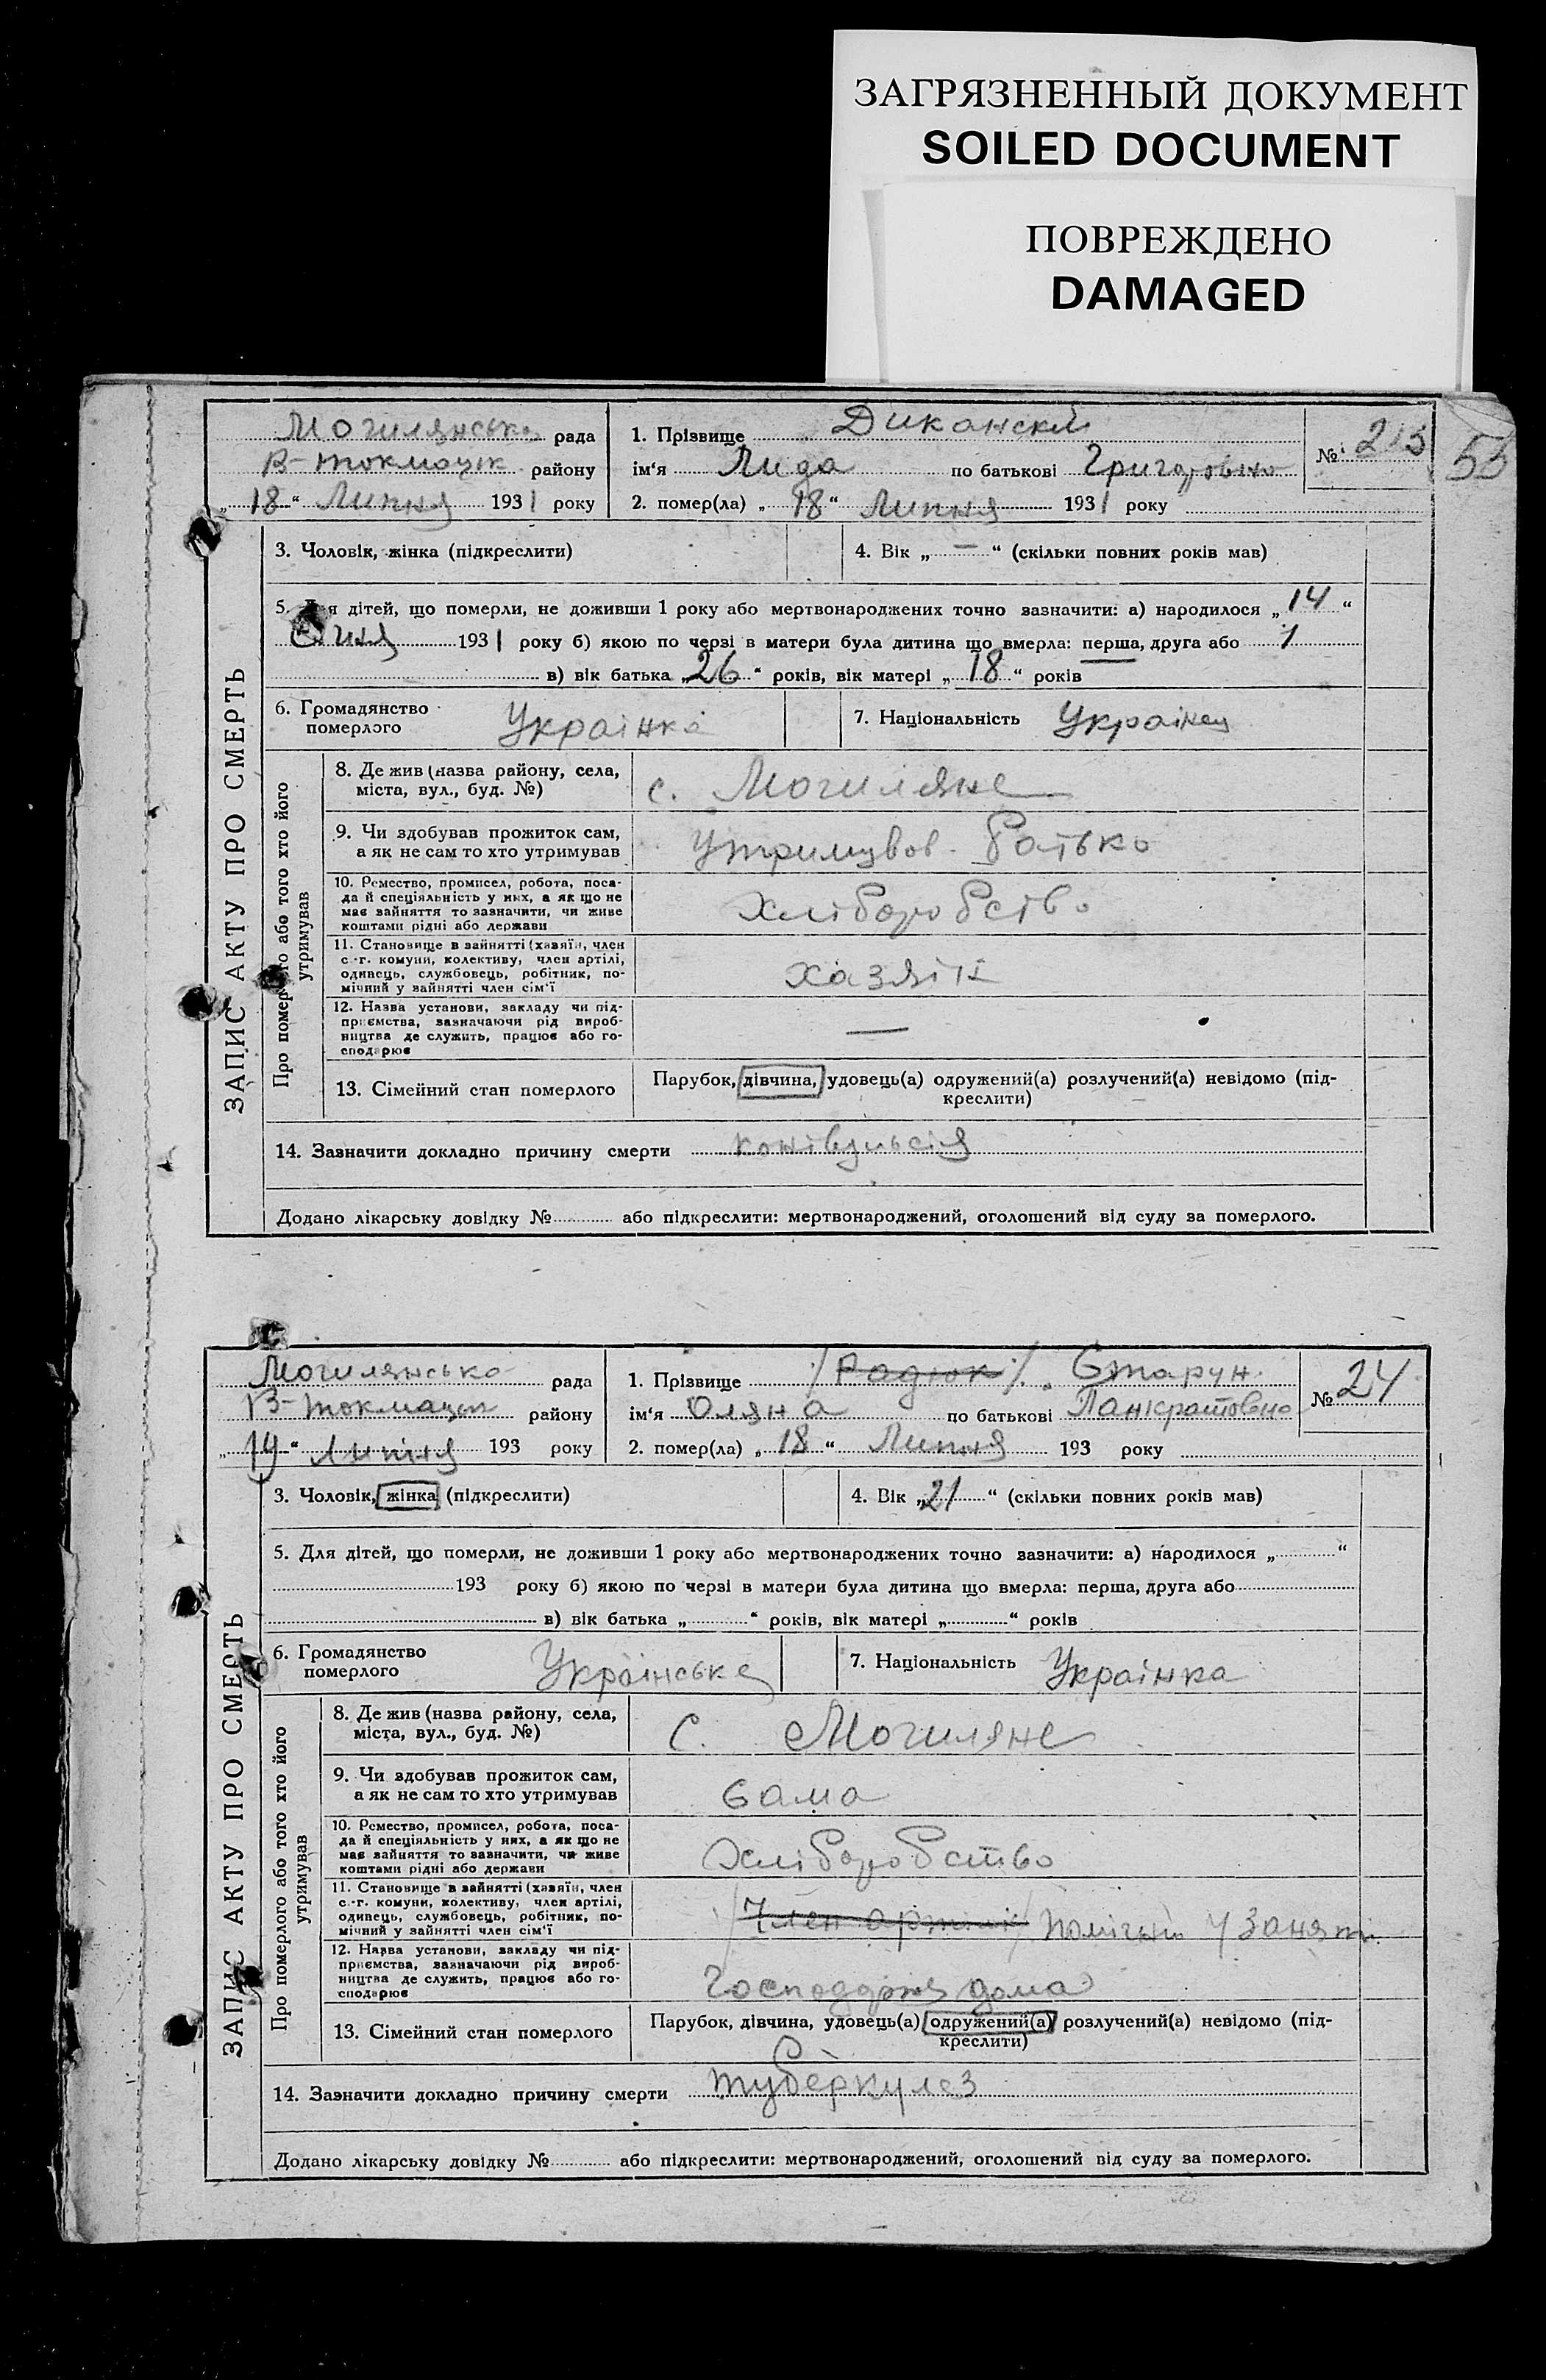 ЗАГРЯЗНЕННЫЙ ДОКУМЕНТ
SOILED DOCUMENT
ПОВРЕЖДЕНО
DAMAGED
55
ЗАПИС АКТУ ПРО СМЕРТЬ
Могилянська рада
В-Токмацьк району
„18“ Липня 1931 року
1. Прізвище Диканский
ім‘я Лида по батькові Григоровно
2. помер(ла) „18“ Липня 1931 року
№ 23
3. Чоловік, жінка (підкреслити)
4. Вік „—“ (скільки повних років мав)
5. Для дітей, що померли, не доживши 1 року або мертвонароджених точно зазначити: а) народилося „14“
1931 року б) якою по черзі в матери була дитина що вмерла: перша, друга або 1
в) вік батька „26“ років, вік матері „18“ років
6. Громадянство
померлого Українка
7. Національність Українец
Про померлого або того хто його
утримував
8. Де жив (назва району, села,
міста, вул., буд. №) с. Могиляне
9. Чи здобував прожиток сам,
а як не сам то хто утримував Утримував батько
10. Ремество, промисел, робота, поса-
да й спеціяльність у них, а як що не
має зайняття то зазначити, чи живе
коштами рідні або держави Хліборобство
11. Становище в зайнятті (хазяїн, член
с.-г. комуни, колективу, член артілі,
одинець, службовець, робітник, по-
мічний у зайнятті член сім‘ї хазяїн
12. Назва установи, закладу чи під-
приємства, зазначаючи рід вироб-
ництва де служить, працює або го-
сподарює —
13. Сімейний стан померлого
Парубок, дівчина, удовець(а) одружений(а) розлучений(а) невідомо (під-
креслити)
14. Зазначити докладно причину смерти конівульсія
Додано лікарську довідку № або підкреслити: мертвонароджений, оголошений від суду за померлого.
ЗАПИС АКТУ ПРО СМЕРТЬ
Могилянсько рада
В-Токмацьк району
„19“ Липня 193 року
1. Прізвище /Радюк/ Старун
ім‘я Оляна по батькові Панкратовно
2. помер(ла) „18“ Липня 193 року
№ 24
3. Чоловік, жінка (підкреслити)
4. Вік „21“ (скільки повних років мав)
5. Для дітей, що померли, не доживши 1 року або мертвонароджених точно зазначити: а) народилося „ “
193 року б) якою по черзі в матери була дитина що вмерла: перша, друга або
в) вік батька „ “ років, вік матері „ “ років
6. Громадянство
померлого Українське
7. Національність Українка
Про померлого або того хто його
утримував
8. Де жив (назва району, села,
міста, вул., буд. №) с. Могиляне
9. Чи здобував прожиток сам,
а як не сам то хто утримував Сама
10. Ремество, промисел, робота, поса-
да й спеціяльність у них, а як що не
має зайняття то зазначити, чи живе
коштами рідні або держави Хліборобство
11. Становище в зайнятті (хазяїн, член
с.-г. комуни, колективу, член артілі,
одинець, службовець, робітник, по-
мічний у зайнятті член сім‘ї /Член артілі/ Помічний у заняти
12. Назва установи, закладу чи під-
приємства, зазначаючи рід вироб-
ництва де служить, працює або го-
сподарює дома
13. Сімейний стан померлого
Парубок, дівчина, удовець(а) одружений(а) розлучений(а) невідомо (під-
креслити)
14. Зазначити докладно причину смерти туберкулез
Додано лікарську довідку № або підкреслити: мертвонароджений, оголошений від суду за померлого.